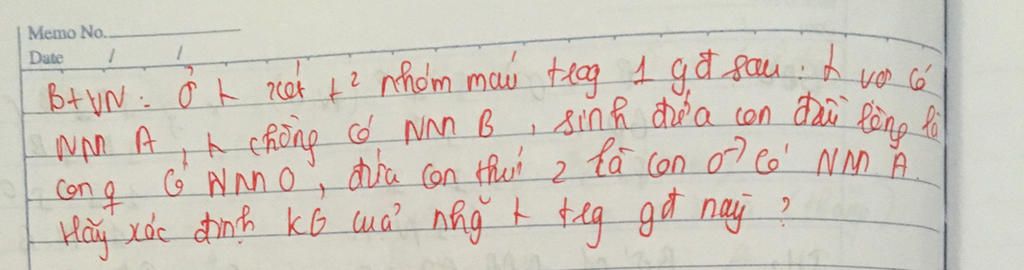 Memo No.
Date / /
B+VN: Ở ⊢ xét t² nhóm máu t⊢og 1 gđ sau: ⊢ vợ có
NM A, ⊢ chồng có NM B, sinh đứa con đầu lòng là
con ♀ có NM O, đứa con thứ 2 là con ♂ có NM A.
Hãy xác định KG của nhg̃ ⊢ t⊢g gđ này?